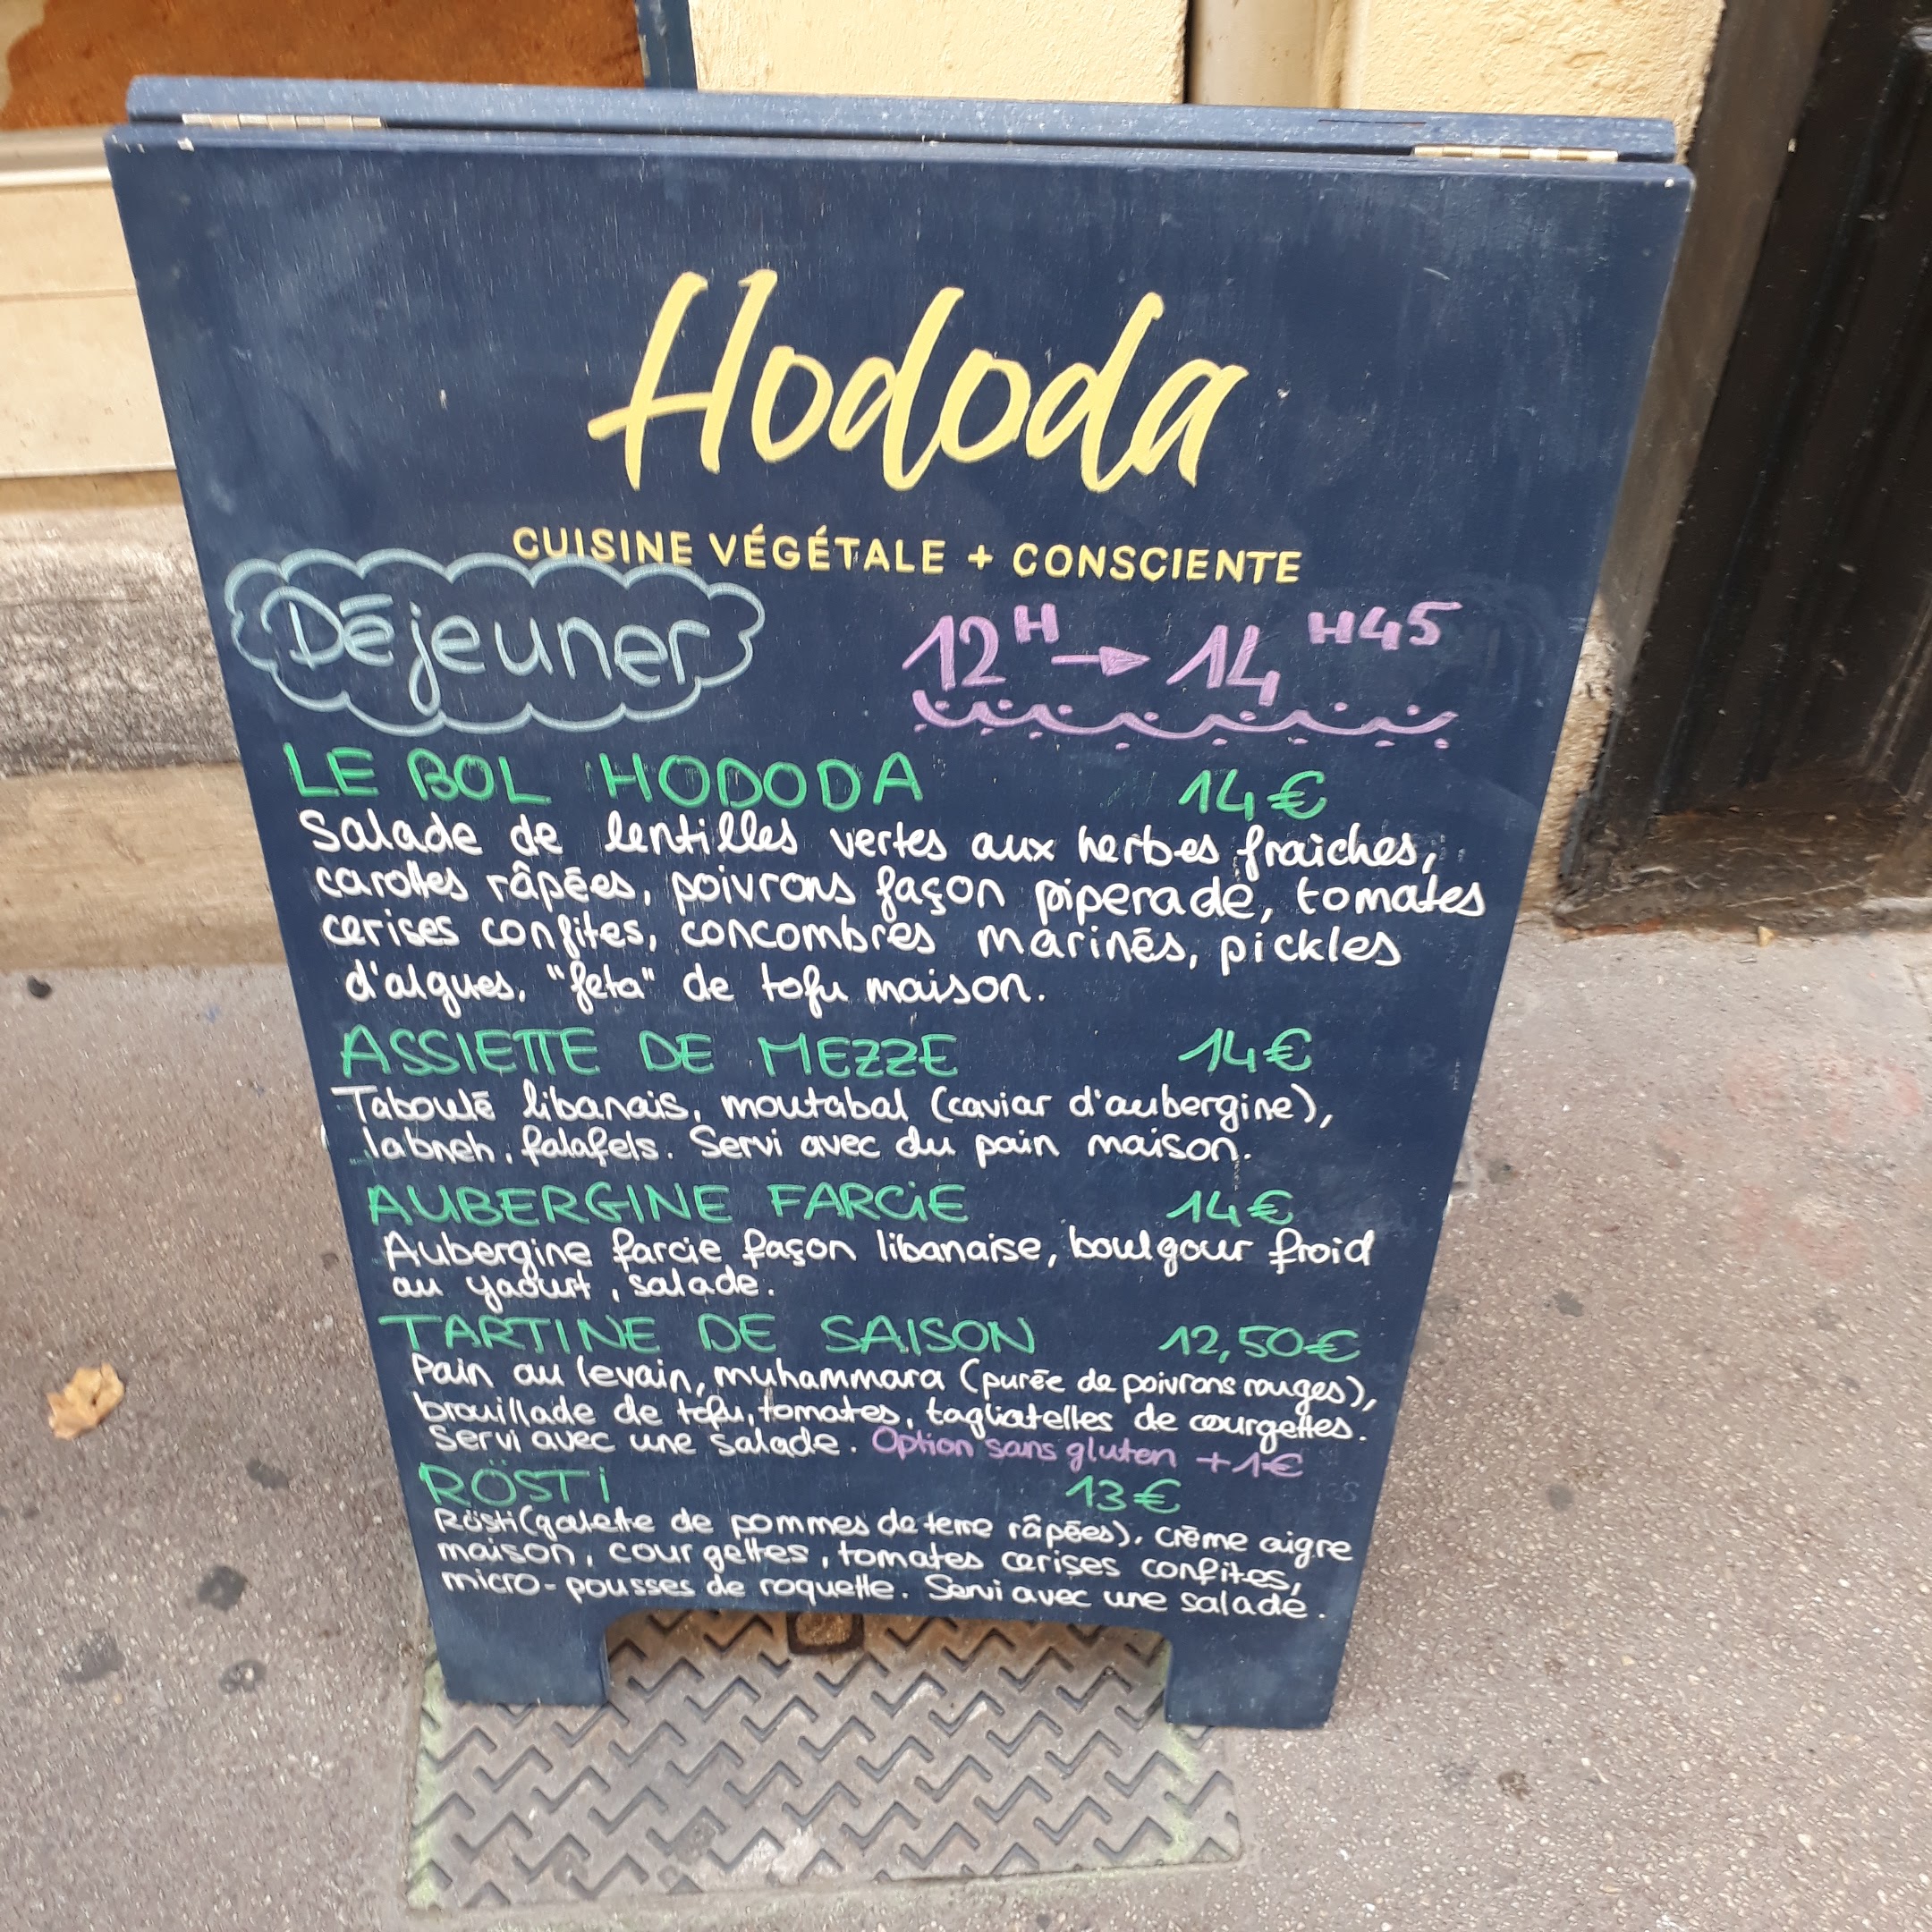 Hododa
CUISINE VÉGÉTALE + CONSCIENTE
Déjeuner 12H → 14H45
LE BOL HODODA 14€
Salade de lentilles vertes aux herbes fraiches,
carottes râpées, poivrons façon piperade, tomates
cerises confites, concombres marinés, pickles
d'algues, "feta" de tofu maison.
ASSIETTE DE MEZZE 14€
Taboulé libanais, moutabal (caviar d'aubergine),
labneh, falafels. Servi avec du pain maison.
AUBERGINE FARCiE 14€
Aubergine farcie façon libanaise, boulgour froid
au yaourt, salade.
TARTINE DE SAISON 12,50€
Pain au levain, muhammara (purée de poivrons rouges),
brouillade de tofu, tomates, tagliatelles de courgettes.
Servi avec une salade. Option sans gluten +1€
RÖSTi 13€
Rösti (galette de pommes de terre râpées), crème aigre
maison, courgettes, tomates cerises confites,
micro-pousses de roquette. Servi avec une salade.